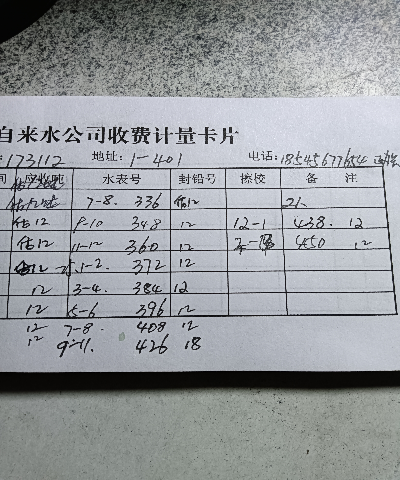 自来水公司收费计量卡片
173112 地址: 1-401 电话: 18545677654
间 应收吨 水表号 封铅号 擦铰 备 注
7-8. 336 估12 2人
估12 9-10 348 12 12-1 438. 12
估12 11-12 360 12 450 12
估12 1-2. 372 12
12 3-4. 384 12
12 5-6 396 12
12 7-8. 408 12
12 9-11. 426 18